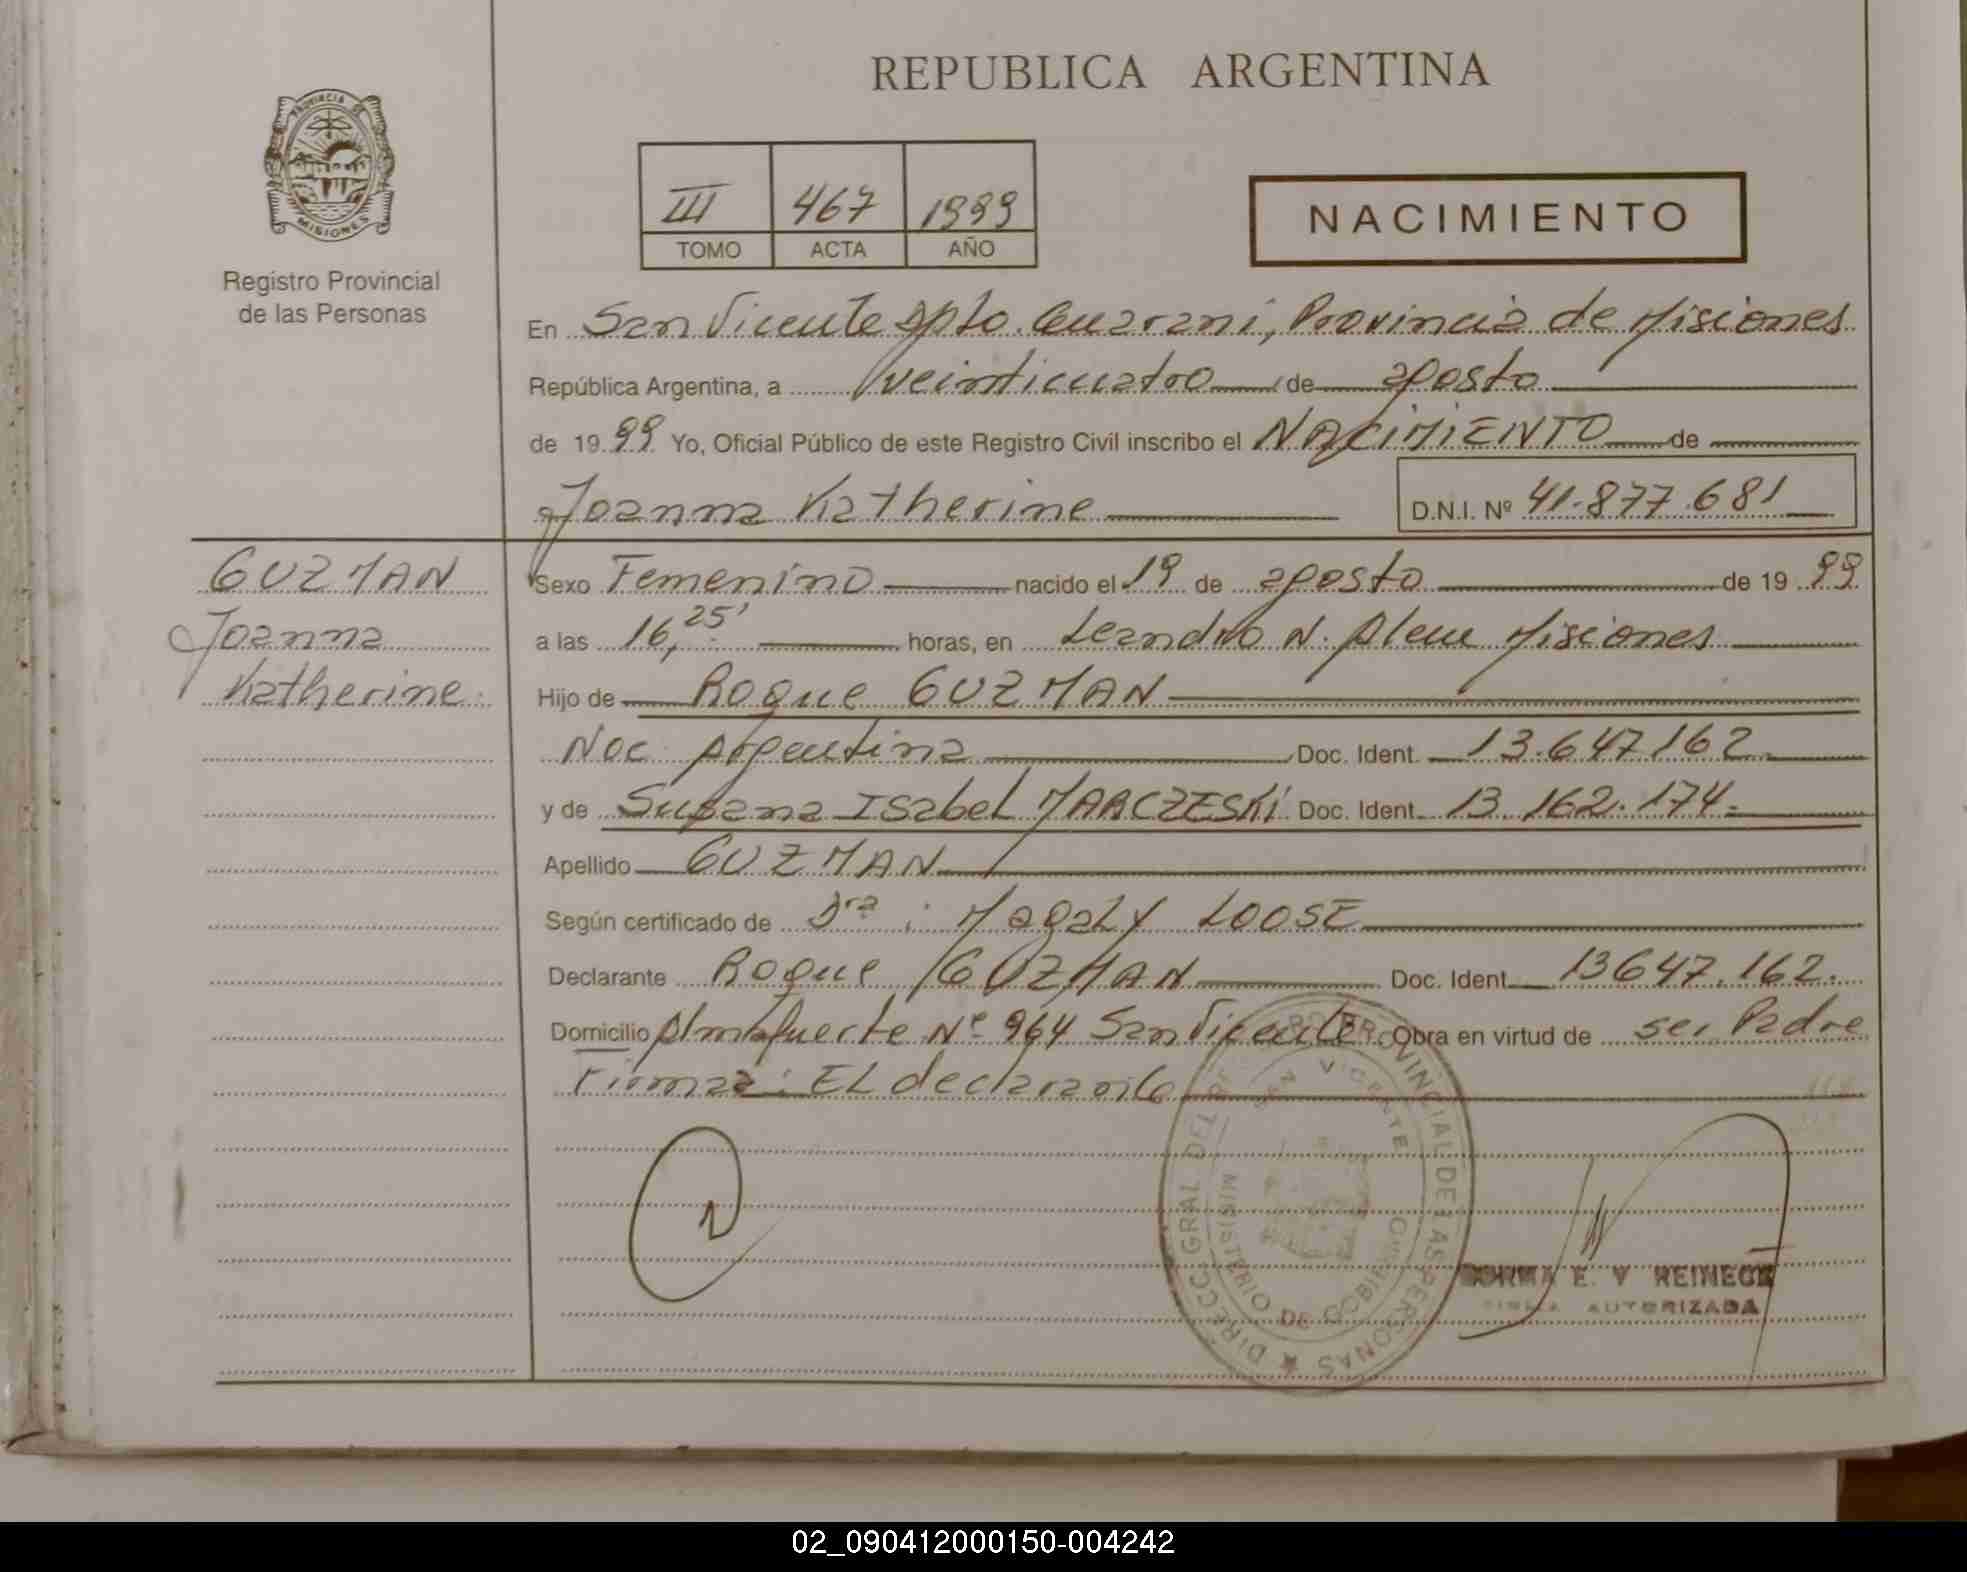 REPUBLICA ARGENTINA
PROVINCIA DE
MISIONES
Registro Provincial
de las Personas
III 467 1999
TOMO ACTA AÑO
NACIMIENTO
En San Vicente Dpto. Guarani, Provincia de Misiones
República Argentina, a veinticuatro de agosto
de 1999 Yo, Oficial Público de este Registro Civil inscribo el NACIMIENTO de
Joanna Katherine D.N.I. Nº 41.877.681
GUZMAN
Joanna
Katherine
Sexo Femenino nacido el 19 de agosto de 1999
a las 16,25' horas, en Leandro N. Alem Misiones
Hijo de Roque GUZMAN
Nac. Argentina Doc. Ident. 13.647.162
y de Susana Isabel MARCZESKI Doc. Ident. 13.162.174.
Apellido GUZMAN
Según certificado de Dra: Magaly LOOSE
Declarante Roque GUZMAN Doc. Ident. 13647.162.
Domicilio Almafuerte Nº 964 San Vicente Obra en virtud de ser Padre
Firma: El declarante
DIRECC. GRAL. DEL REG. PROVINCIAL DE LAS PERSONAS
SAN VICENTE
MINISTERIO DE GOBIERNO
NORMA E. V REINECK
FIRMA AUTORIZADA
02_090412000150-004242